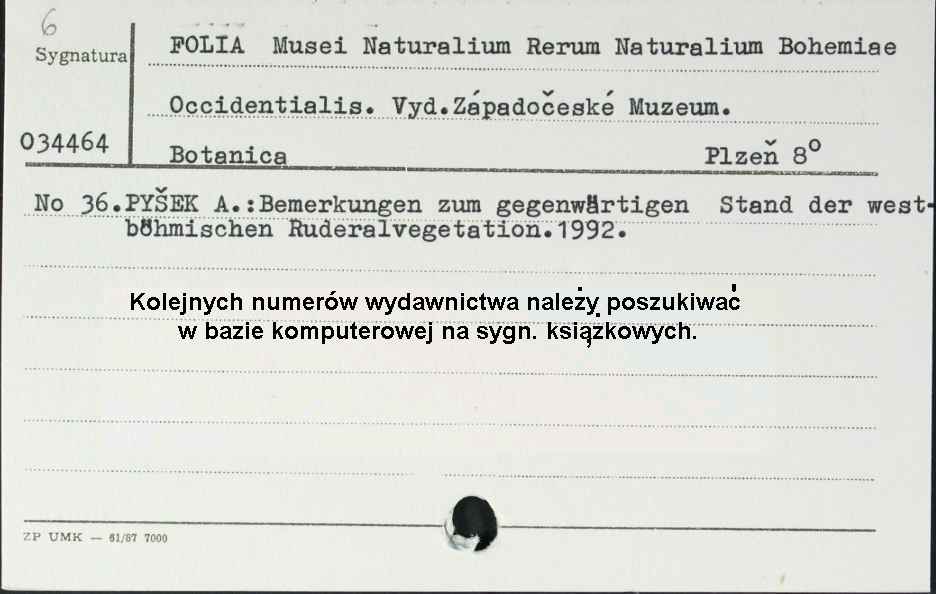 6
Sygnatura
FOLIA Musei Naturalium Rerum Naturalium Bohemiae
Occidentialis. Vyd.Západočeské Muzeum.
034464
Botanica Plzeň 8º
No 36.PYŠEK A.:Bemerkungen zum gegenwärtigen Stand der west-
böhmischen Ruderalvegetation.1992.
Kolejnych numerów wydawnictwa należy poszukiwać
w bazie komputerowej na sygn. książkowych.
ZP UMK — 61/87 7000